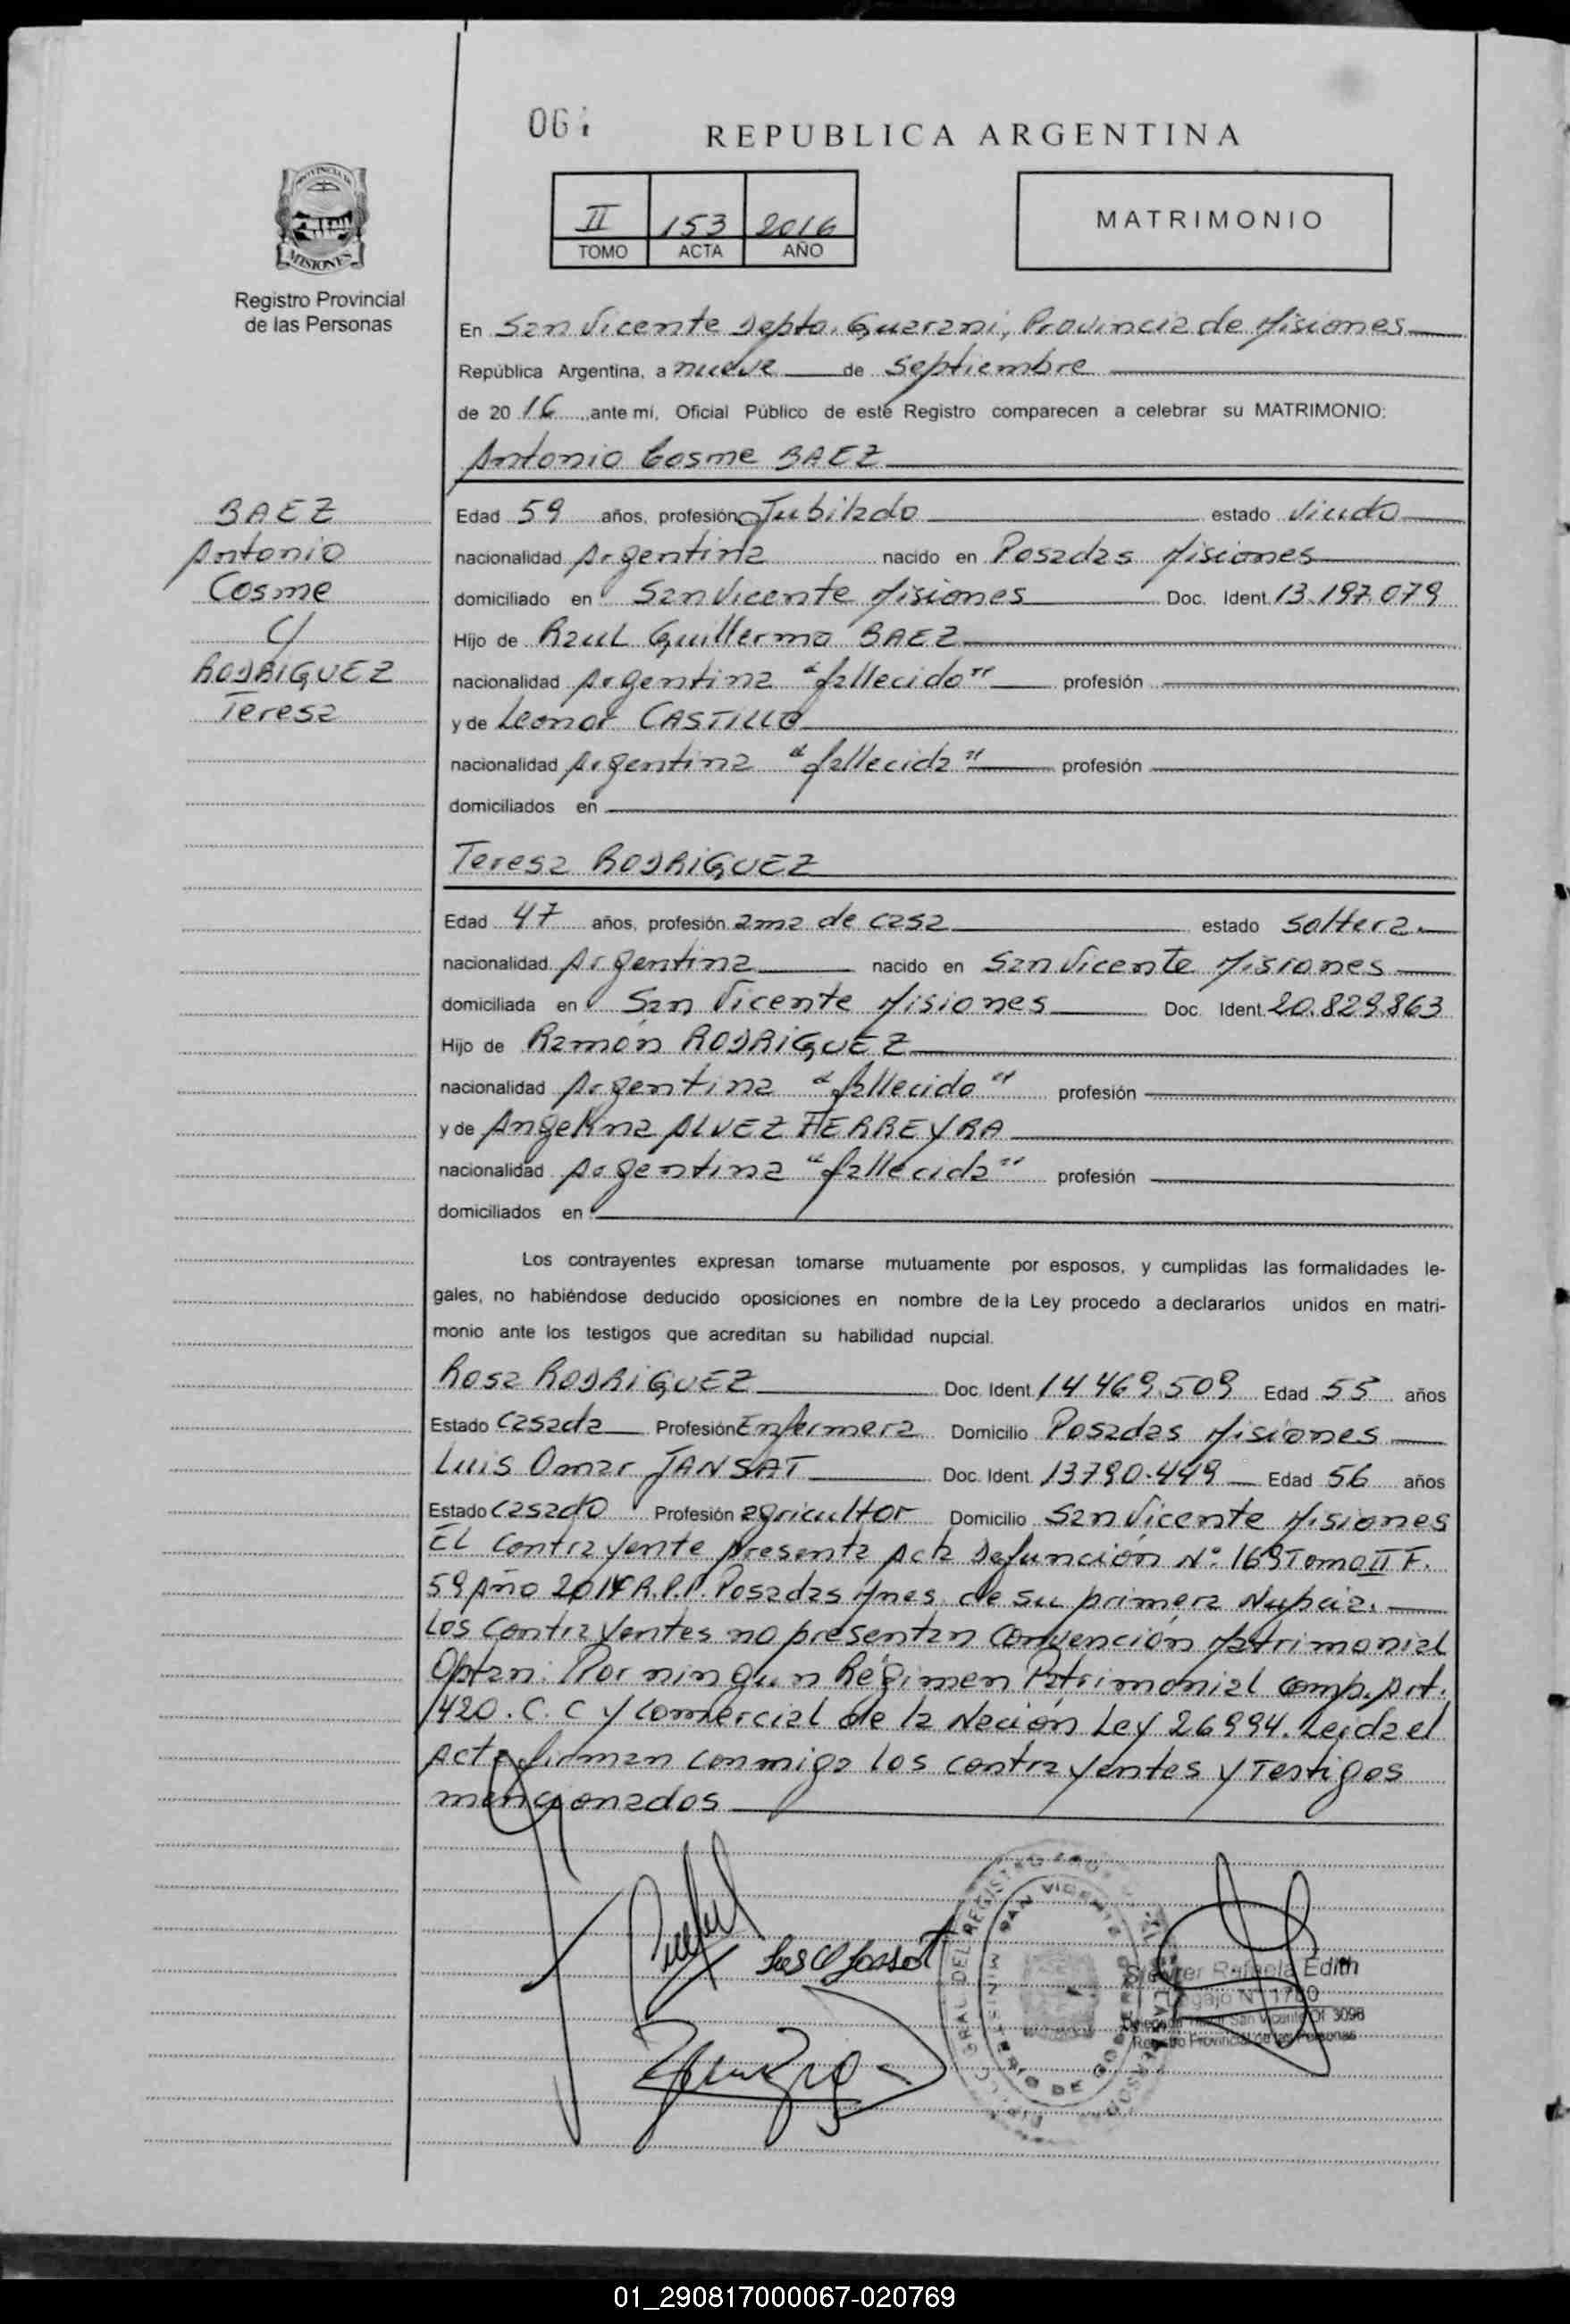 REPUBLICA ARGENTINA
II 153 2016
TOMO ACTA AÑO
MATRIMONIO
PROVINCIA DE
MISIONES
Registro Provincial
de las Personas
En San Vicente Depto. Guarani, Provincia de Misiones
República Argentina, a nueve de septiembre
de 20 16 ante mi, Oficial Público de este Registro comparecen a celebrar su MATRIMONIO:
Antonio Cosme BAEZ
BAEZ
Antonio
Cosme
C/
RODRIGUEZ
Teresa
Edad 59 años, profesión Jubilado estado viudo
nacionalidad Argentina nacido en Posadas Misiones
domiciliado en San Vicente Misiones Doc. Ident. 13.197.079
Hijo de Raul Guillermo BAEZ
nacionalidad Argentina "fallecido" profesión
y de Leonor CASTILLO
nacionalidad Argentina "fallecida" profesión
domiciliados en
Teresa RODRIGUEZ
Edad 47 años, profesión ama de casa estado soltera.
nacionalidad Argentina nacido en San Vicente Misiones
domiciliada en San Vicente Misiones Doc. Ident. 20.829.863
Hijo de Ramón RODRIGUEZ
nacionalidad Argentina "fallecido" profesión
y de Angelina ALVEZ FIERREYRA
nacionalidad Argentina "fallecida" profesión
domiciliados en
Los contrayentes expresan tomarse mutuamente por esposos, y cumplidas las formalidades le-
gales, no habiéndose deducido oposiciones en nombre de la Ley procedo a declararlos unidos en matri-
monio ante los testigos que acreditan su habilidad nupcial.
Rosa RODRIGUEZ Doc. Ident. 14.469.509 Edad 55 años
Estado casada Profesión Enfermera Domicilio Posadas Misiones
Luis Omar JANSAT Doc. Ident. 13.790.449 Edad 56 años
Estado casado Profesión agricultor Domicilio San Vicente Misiones
El Contrayente presenta Acta Defunción N° 169 Tomo II F.
59 Año 2014 R.P.P. Posadas Mnes. de su primera Nupcia.
Los Contrayentes no presentan Convención Matrimonial
Optan: Por ningun Régimen Patrimonial Comp. Art.
420. C. C y Comercial de la Nación Ley 26994. Leida el
Acta firman conmigo los contrayentes y Testigos
mencionados
SAN VICENTE
Rafaela Edith
01_290817000067-020769